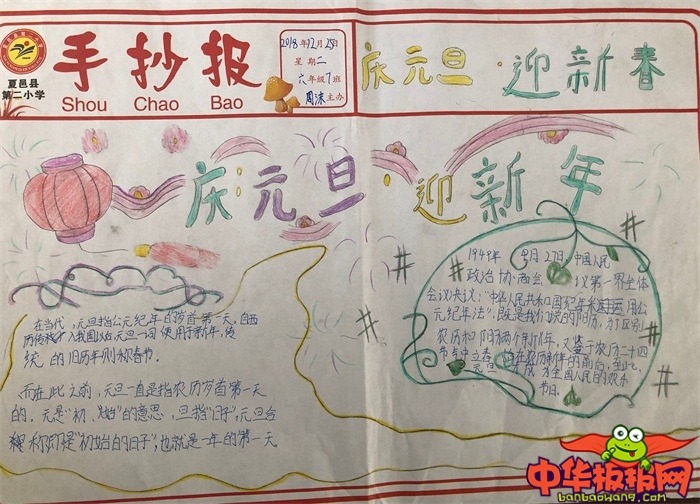 夏邑县
第二小学
手抄报
Shou Chao Bao
2018年12月25日
星期二
六年级7班
周沫主办
庆元旦·迎新春
庆元旦·迎新年
在当代,元旦指公元纪年的岁首第一天。自西
历传入我国以后,元旦一词使用于新年,传
统的旧历年则称春节。
而在此之前,元旦一直是指农历岁首第一天
的。元是"初""始"的意思,旦指"日子",元旦合
称即是"初始的日子",也就是一年的第一天
1949年9月27日,中国人民
政治协商会议第一届全体
会议决议:"中华人民共和国纪年采用公
元纪年法",既是我们说的阳历,为了区别
农历和阳历两个新年,又鉴于农历二十四
节气中立春在农历新年的前后,至此,
元旦成为全国人民的欢乐
节日。
中华板报网
banbaowang.com